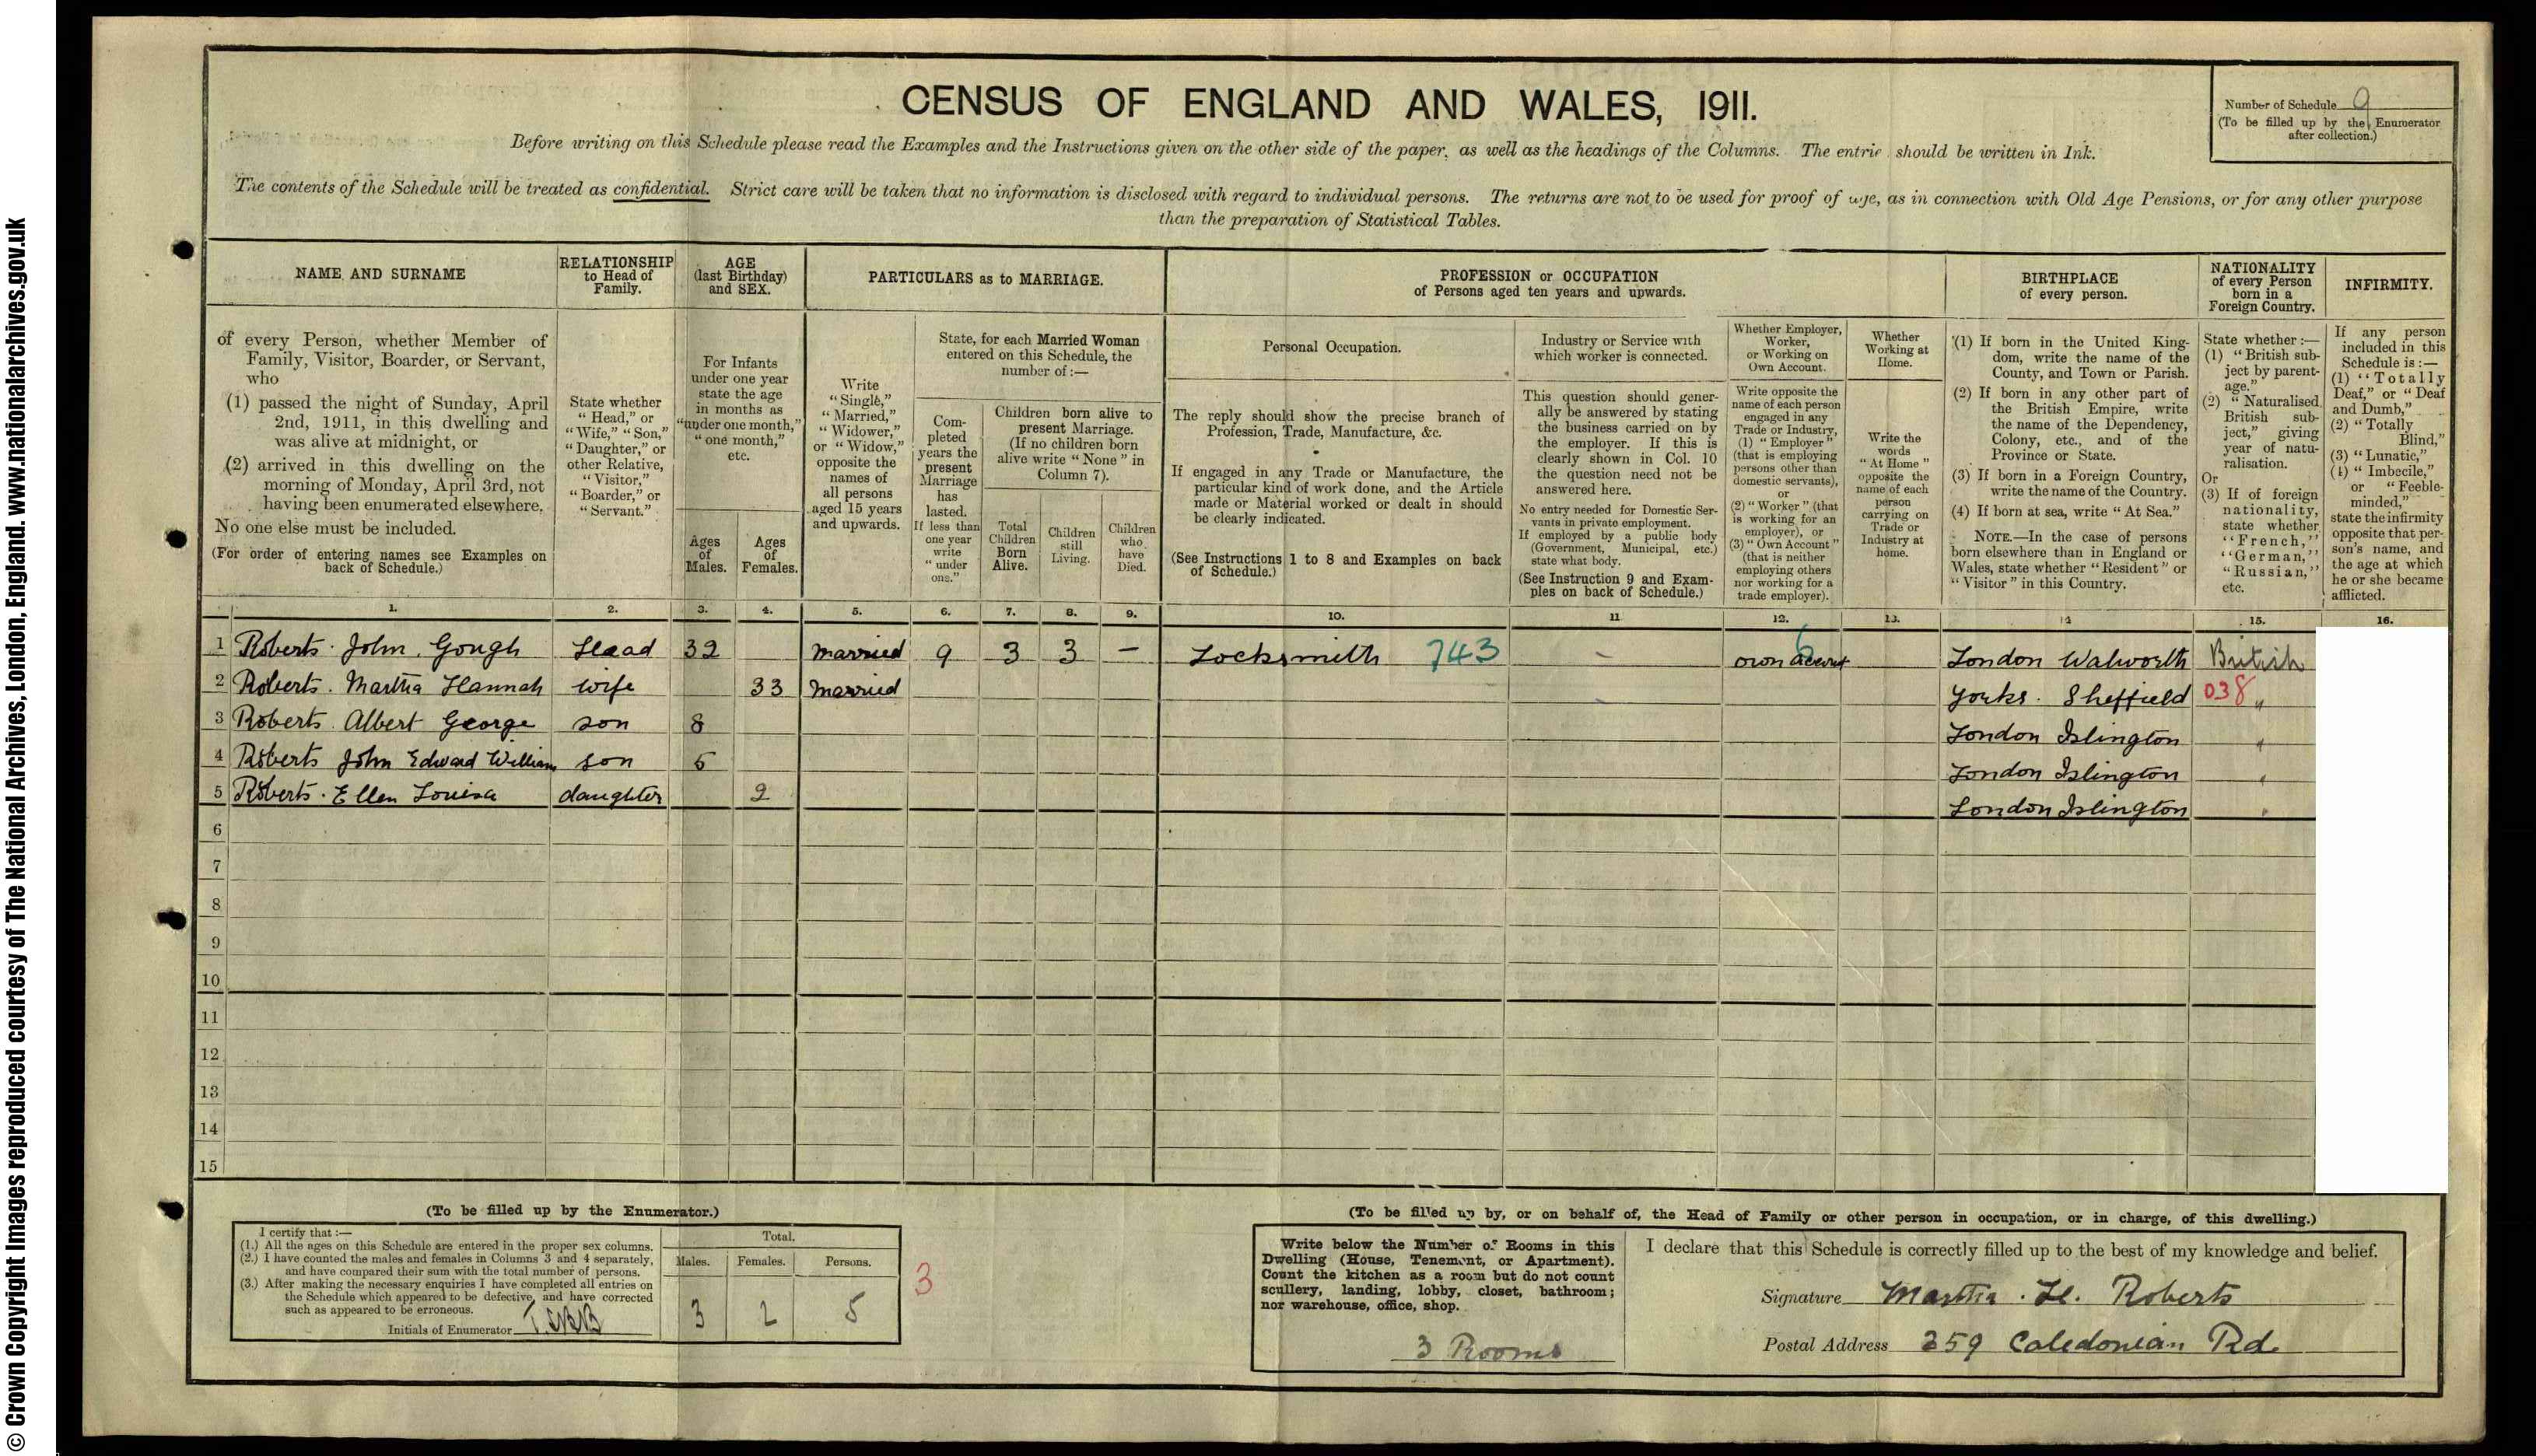 © Crown Copyright Images reproduced courtesy of The National Archives, London, England. www.nationalarchives.gov.uk
CENSUS OF ENGLAND AND WALES, 1911.
Number of Schedule 9
(To be filled up by the Enumerator
after collection.)
Before writing on this Schedule please read the Examples and the Instructions given on the other side of the paper, as well as the headings of the Columns. The entrie should be written in Ink.
The contents of the Schedule will be treated as confidential. Strict care will be taken that no information is disclosed with regard to individual persons. The returns are not to be used for proof of age, as in connection with Old Age Pensions, or for any other purpose
than the preparation of Statistical Tables.
NAME AND SURNAME
of every Person, whether Member of
Family, Visitor, Boarder, or Servant,
who
(1) passed the night of Sunday, April
2nd, 1911, in this dwelling and
was alive at midnight, or
(2) arrived in this dwelling on the
morning of Monday, April 3rd, not
having been enumerated elsewhere.
No one else must be included.
(For order of entering names see Examples on
back of Schedule.)
RELATIONSHIP
to Head of
Family.
State whether
"Head," or
"Wife," "Son,"
"Daughter," or
other Relative,
"Visitor,"
"Boarder," or
"Servant."
AGE
(last Birthday)
and SEX.
For Infants
under one year
state the age
in months as
"under one month,"
"one month,"
etc.
Ages
of
Males.
Ages
of
Females.
PARTICULARS as to MARRIAGE.
Write
"Single,"
"Married,"
"Widower,"
or "Widow,"
opposite the
names of
all persons
aged 15 years
and upwards.
State, for each Married Woman
entered on this Schedule, the
number of :—
Com-
pleted
years the
present
Marriage
has
lasted.
If less than
one year
write
"under
one."
Children born alive to
present Marriage.
(If no children born
alive write "None" in
Column 7).
Total
Children
Born
Alive.
Children
still
Living.
Children
who
have
Died.
PROFESSION or OCCUPATION
of Persons aged ten years and upwards.
Personal Occupation.
The reply should show the precise branch of
Profession, Trade, Manufacture, &c.
If engaged in any Trade or Manufacture, the
particular kind of work done, and the Article
made or Material worked or dealt in should
be clearly indicated.
(See Instructions 1 to 8 and Examples on back
of Schedule.)
Industry or Service with
which worker is connected.
This question should gener-
ally be answered by stating
the business carried on by
the employer. If this is
clearly shown in Col. 10
the question need not be
answered here.
No entry needed for Domestic Ser-
vants in private employment.
If employed by a public body
(Government, Municipal, etc.)
state what body.
(See Instruction 9 and Exam-
ples on back of Schedule.)
Whether Employer,
Worker,
or Working on
Own Account.
Write opposite the
name of each person
engaged in any
Trade or Industry,
(1) "Employer"
(that is employing
persons other than
domestic servants),
or
(2) "Worker" (that
is working for an
employer), or
(3) "Own Account"
(that is neither
employing others
nor working for a
trade employer).
Whether
Working at
Home.
Write the
words
"At Home"
opposite the
name of each
person
carrying on
Trade or
Industry at
home.
BIRTHPLACE
of every person.
(1) If born in the United King-
dom, write the name of the
County, and Town or Parish.
(2) If born in any other part of
the British Empire, write
the name of the Dependency,
Colony, etc., and of the
Province or State.
(3) If born in a Foreign Country,
write the name of the Country.
(4) If born at sea, write "At Sea."
NOTE.—In the case of persons
born elsewhere than in England or
Wales, state whether "Resident" or
"Visitor" in this Country.
NATIONALITY
of every Person
born in a
Foreign Country.
State whether :—
(1) "British sub-
ject by parent-
age."
(2) "Naturalised
British sub-
ject," giving
year of natu-
ralisation.
Or
(3) If of foreign
nationality,
state whether
"French,"
"German,"
"Russian,"
etc.
INFIRMITY.
If any person
included in this
Schedule is :—
(1) "Totally
Deaf," or "Deaf
and Dumb,"
(2) "Totally
Blind,"
(3) "Lunatic,"
(4) "Imbecile,"
or "Feeble-
minded,"
state the infirmity
opposite that per-
son's name, and
the age at which
he or she became
afflicted.
1. 2. 3. 4. 5. 6. 7. 8. 9. 10. 11 12. 13. 14 15. 16.
1 Roberts John Gough Head 32 Married 9 3 3 — Locksmith 743 – own account 6 London Walworth British
2 Roberts. Martha Hannah wife 33 Married Yorks. Sheffield 038 "
3 Roberts Albert George son 8 London Islington "
4 Roberts John Edward William son 5 London Islington "
5 Roberts. Ellen Louisa daughter 2 London Islington "
6
7
8
9
10
11
12
13
14
15
(To be filled up by the Enumerator.)
I certify that :—
(1.) All the ages on this Schedule are entered in the proper sex columns.
(2.) I have counted the males and females in Columns 3 and 4 separately,
and have compared their sum with the total number of persons.
(3.) After making the necessary enquiries I have completed all entries on
the Schedule which appeared to be defective, and have corrected
such as appeared to be erroneous.
Initials of Enumerator
Total.
Males. Females. Persons.
3 2 5
3
(To be filled up by, or on behalf of, the Head of Family or other person in occupation, or in charge, of this dwelling.)
Write below the Number of Rooms in this
Dwelling (House, Tenement, or Apartment).
Count the kitchen as a room but do not count
scullery, landing, lobby, closet, bathroom;
nor warehouse, office, shop.
3 Rooms
I declare that this Schedule is correctly filled up to the best of my knowledge and belief.
Signature Martha. H. Roberts
Postal Address 359 Caledonian Rd.